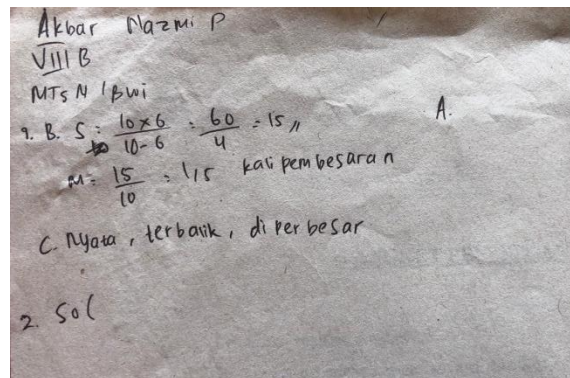 Akbar Nazmi P
VIII B
MTsN 1 Bwi
A.
1. B. S = 10x6 / 10-6 = 60 / 4 = 15 //
M = 15 / 10 = 1,5 kali pembesaran
C. Nyata, terbalik, diperbesar
2. Sol